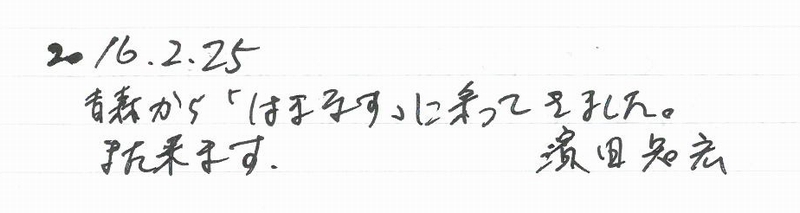 2016.2.25
青森から「はまなす」に乗ってきました。
また来ます. 濱田知宏